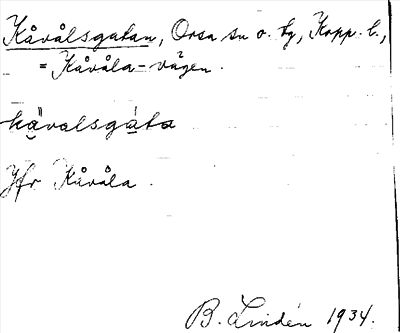 Kåvålsgatan, Orsa sn o. tg, Kopp. l.,
= Kåvåla-vägen.
kä̀valsgáta
Jfr Kåvåla.
B. Lindén 1934.